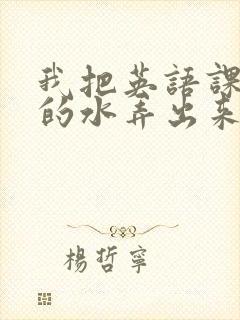 我把英語課
的水弄出來
楊哲寧